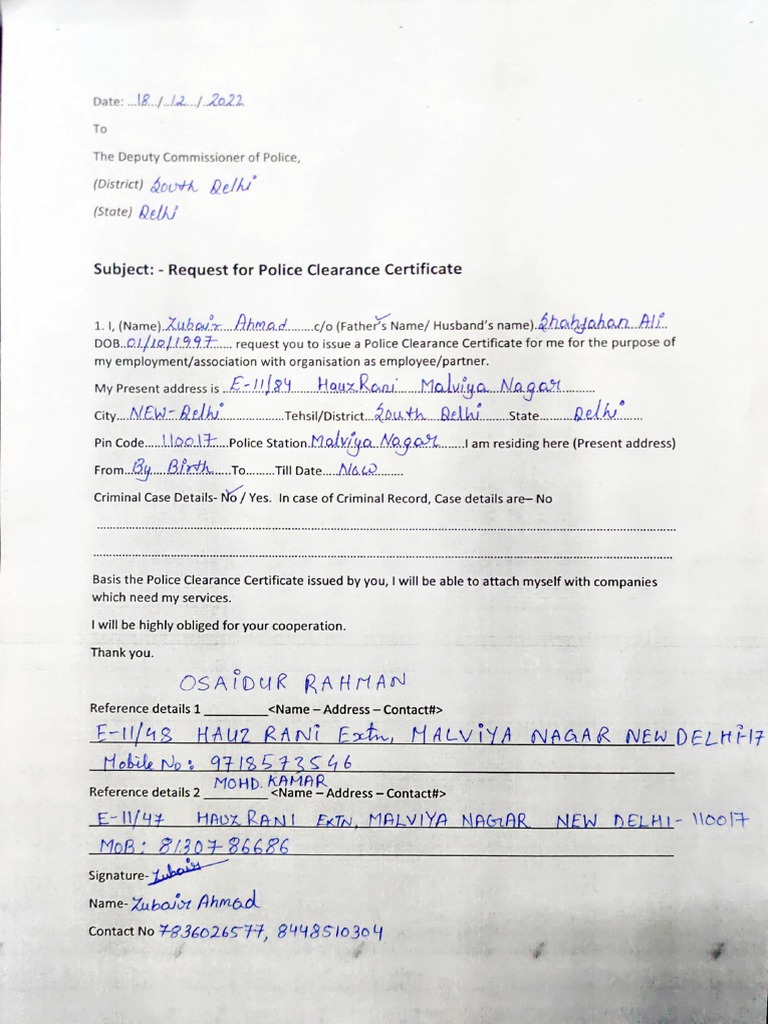 Date: ...18.../...12.../...2022
To
The Deputy Commissioner of Police,
(District) South Delhi
(State) Delhi
Subject: - Request for Police Clearance Certificate
1. I, (Name)..Zubair Ahmad........c/o (Father's Name/ Husband's name)..Shahjahan Ali..
DOB..01/10/1997...... request you to issue a Police Clearance Certificate for me for the purpose of
my employment/association with organisation as employee/partner.
My Present address is ..E-11/84 Hauz Rani Malviya Nagar..........
City....NEW-Delhi....................Tehsil/District...South Delhi........State..........Delhi.....
Pin Code.....110017....Police Station..Malviya Nagar........I am residing here (Present address)
From...By Birth......To.........Till Date.....Now.........
Criminal Case Details- No / Yes. In case of Criminal Record, Case details are– No
Basis the Police Clearance Certificate issued by you, I will be able to attach myself with companies
which need my services.
I will be highly obliged for your cooperation.
Thank you.
OSAIDUR RAHMAN
Reference details 1 _________<Name – Address – Contact#>
E-11/48 HAUZ RANI Extn, MALVIYA NAGAR NEW DELHI-17
Mobile No: 9718573546
MOHD. KAMAR
Reference details 2 _________<Name – Address – Contact#>
E-11/47 HAUZ RANI EXTN, MALVIYA NAGAR NEW DELHI-110017
MOB: 8130786686
Signature- Zubair
Name- Zubair Ahmad
Contact No 7836026577, 8448510304